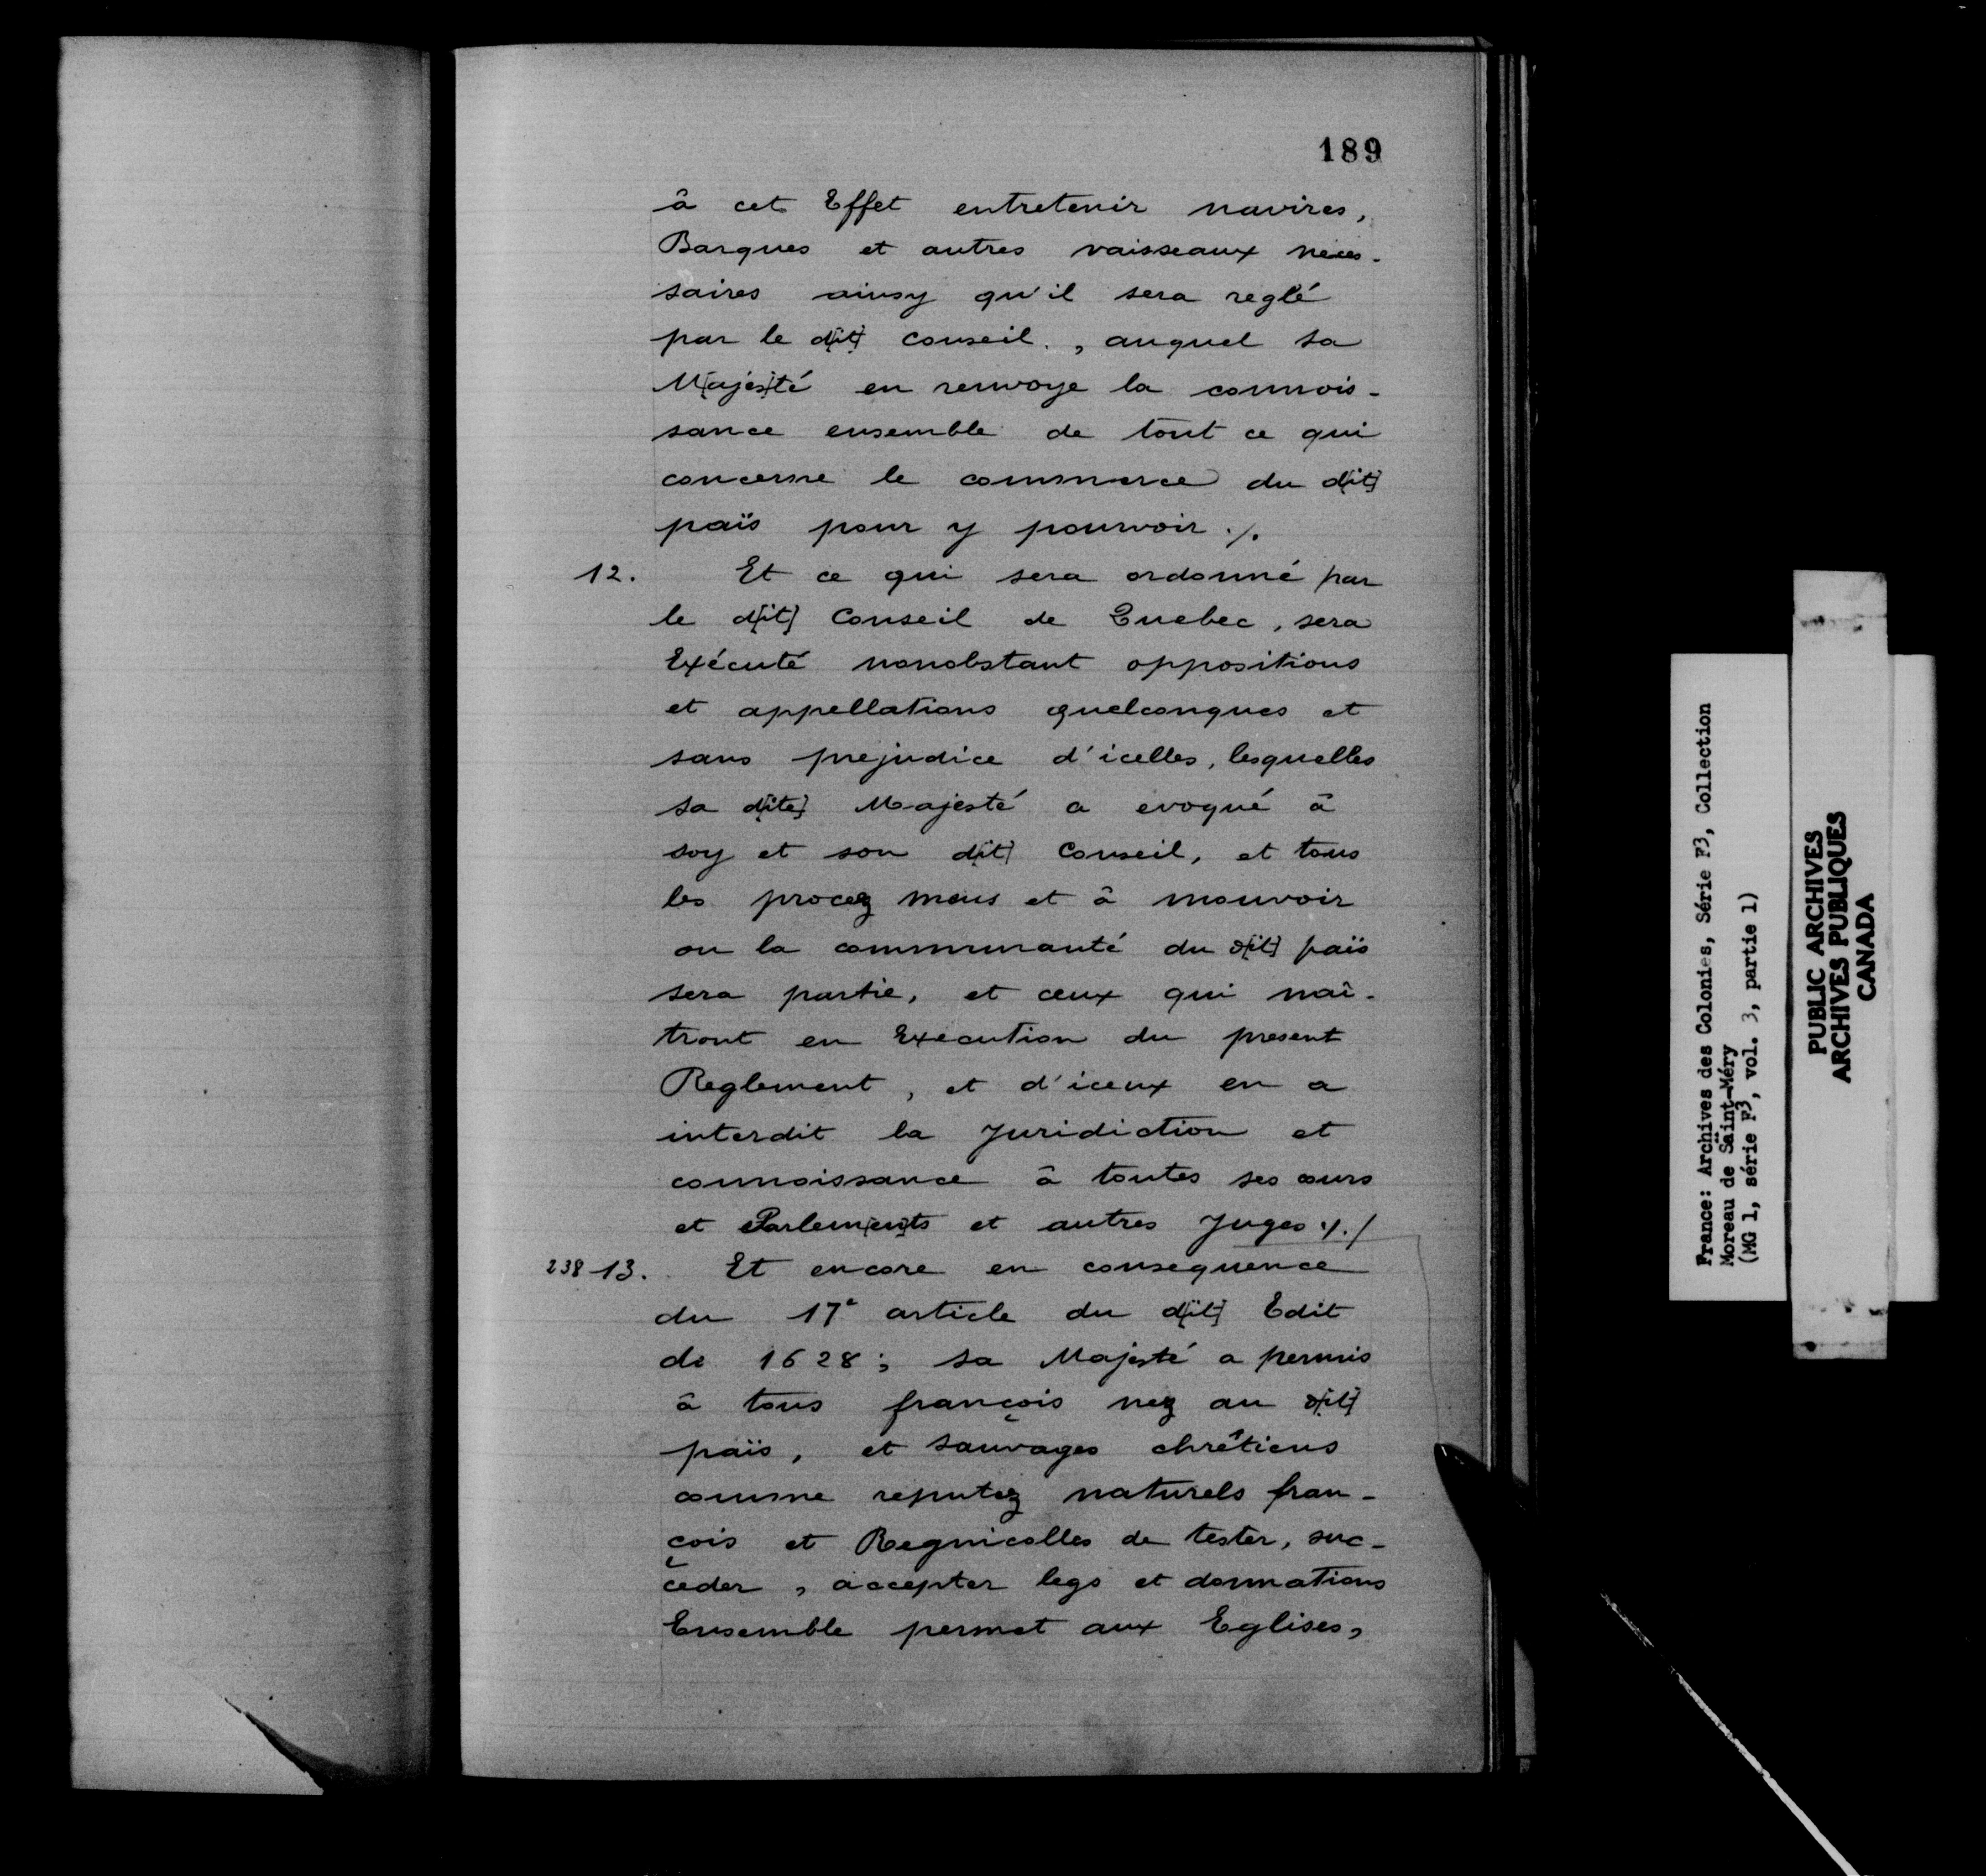 189
â cet Effet entretenir navires,
Barques et autres vaisseaux néces-
saires ainsy qu'il sera reglé
par le d[it] Conseil., auquel sa
M[ajes]té en renvoye la connois-
sance ensemble de tout ce qui
concerne le commerce du d[it]
païs pour y pourvoir ./.
12. Et ce qui sera ordonné par
le d[it] Conseil de Quebec, sera
Exécuté nonobstant oppositions
et appellations quelconques et
sans prejudice d'icelles, lesquelles
sa d[ite] Majesté a evoqué â
soy et son d[it] Conseil, et tous
les procez meus et â mouvoir
ou la communauté du d[it] païs
sera partie, et ceux qui naî-
tront en Execution du present
Reglement, et d'iceux en a
interdit la Juridiction et
connoissance â toutes ses cours
et Parlem[en]ts et autres Juges ./. /
238 13. Et encore en consequence
du 17e article du d[it] Edit
de 1628; sa Majesté a permis
â tous françois nez au d[it]
païs, et sauvages chrêtiens
comme reputez naturels fran-
çois et Regnicolles de tester, suc-
ceder, accepter legs et donnations
Ensemble permet aux Eglises,
France: Archives des Colonies, Série F3, Collection
Moreau de Saint-Méry
(MG 1, série F3, vol. 3, partie 1)
PUBLIC ARCHIVES
ARCHIVES PUBLIQUES
CANADA